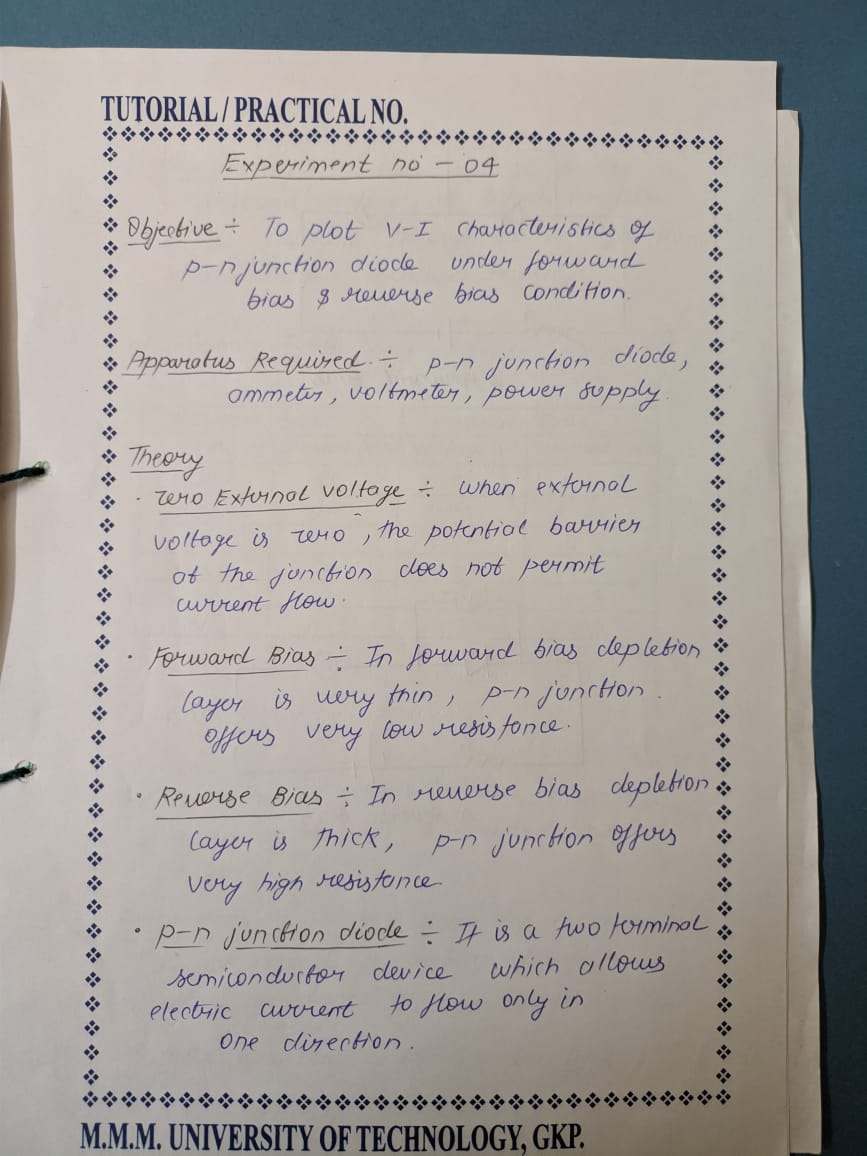 TUTORIAL / PRACTICAL NO.
Experiment no - 04
Objective ÷ To plot V-I characteristics of
p-n junction diode under forward
bias & reverse bias condition.
Apparatus Required ÷ p-n junction diode,
ammeter, voltmeter, power supply.
Theory
· Zero External voltage ÷ when external
voltage is zero, the potential barrier
at the junction does not permit
current flow.
· Forward Bias ÷ In forward bias depletion
layer is very thin, p-n junction.
offers very low resistance.
· Reverse Bias ÷ In reverse bias depletion
layer is thick, p-n junction offers
very high resistance
· p-n junction diode ÷ It is a two terminal
semiconductor device which allows
electric current to flow only in
one direction.
M.M.M. UNIVERSITY OF TECHNOLOGY, GKP.